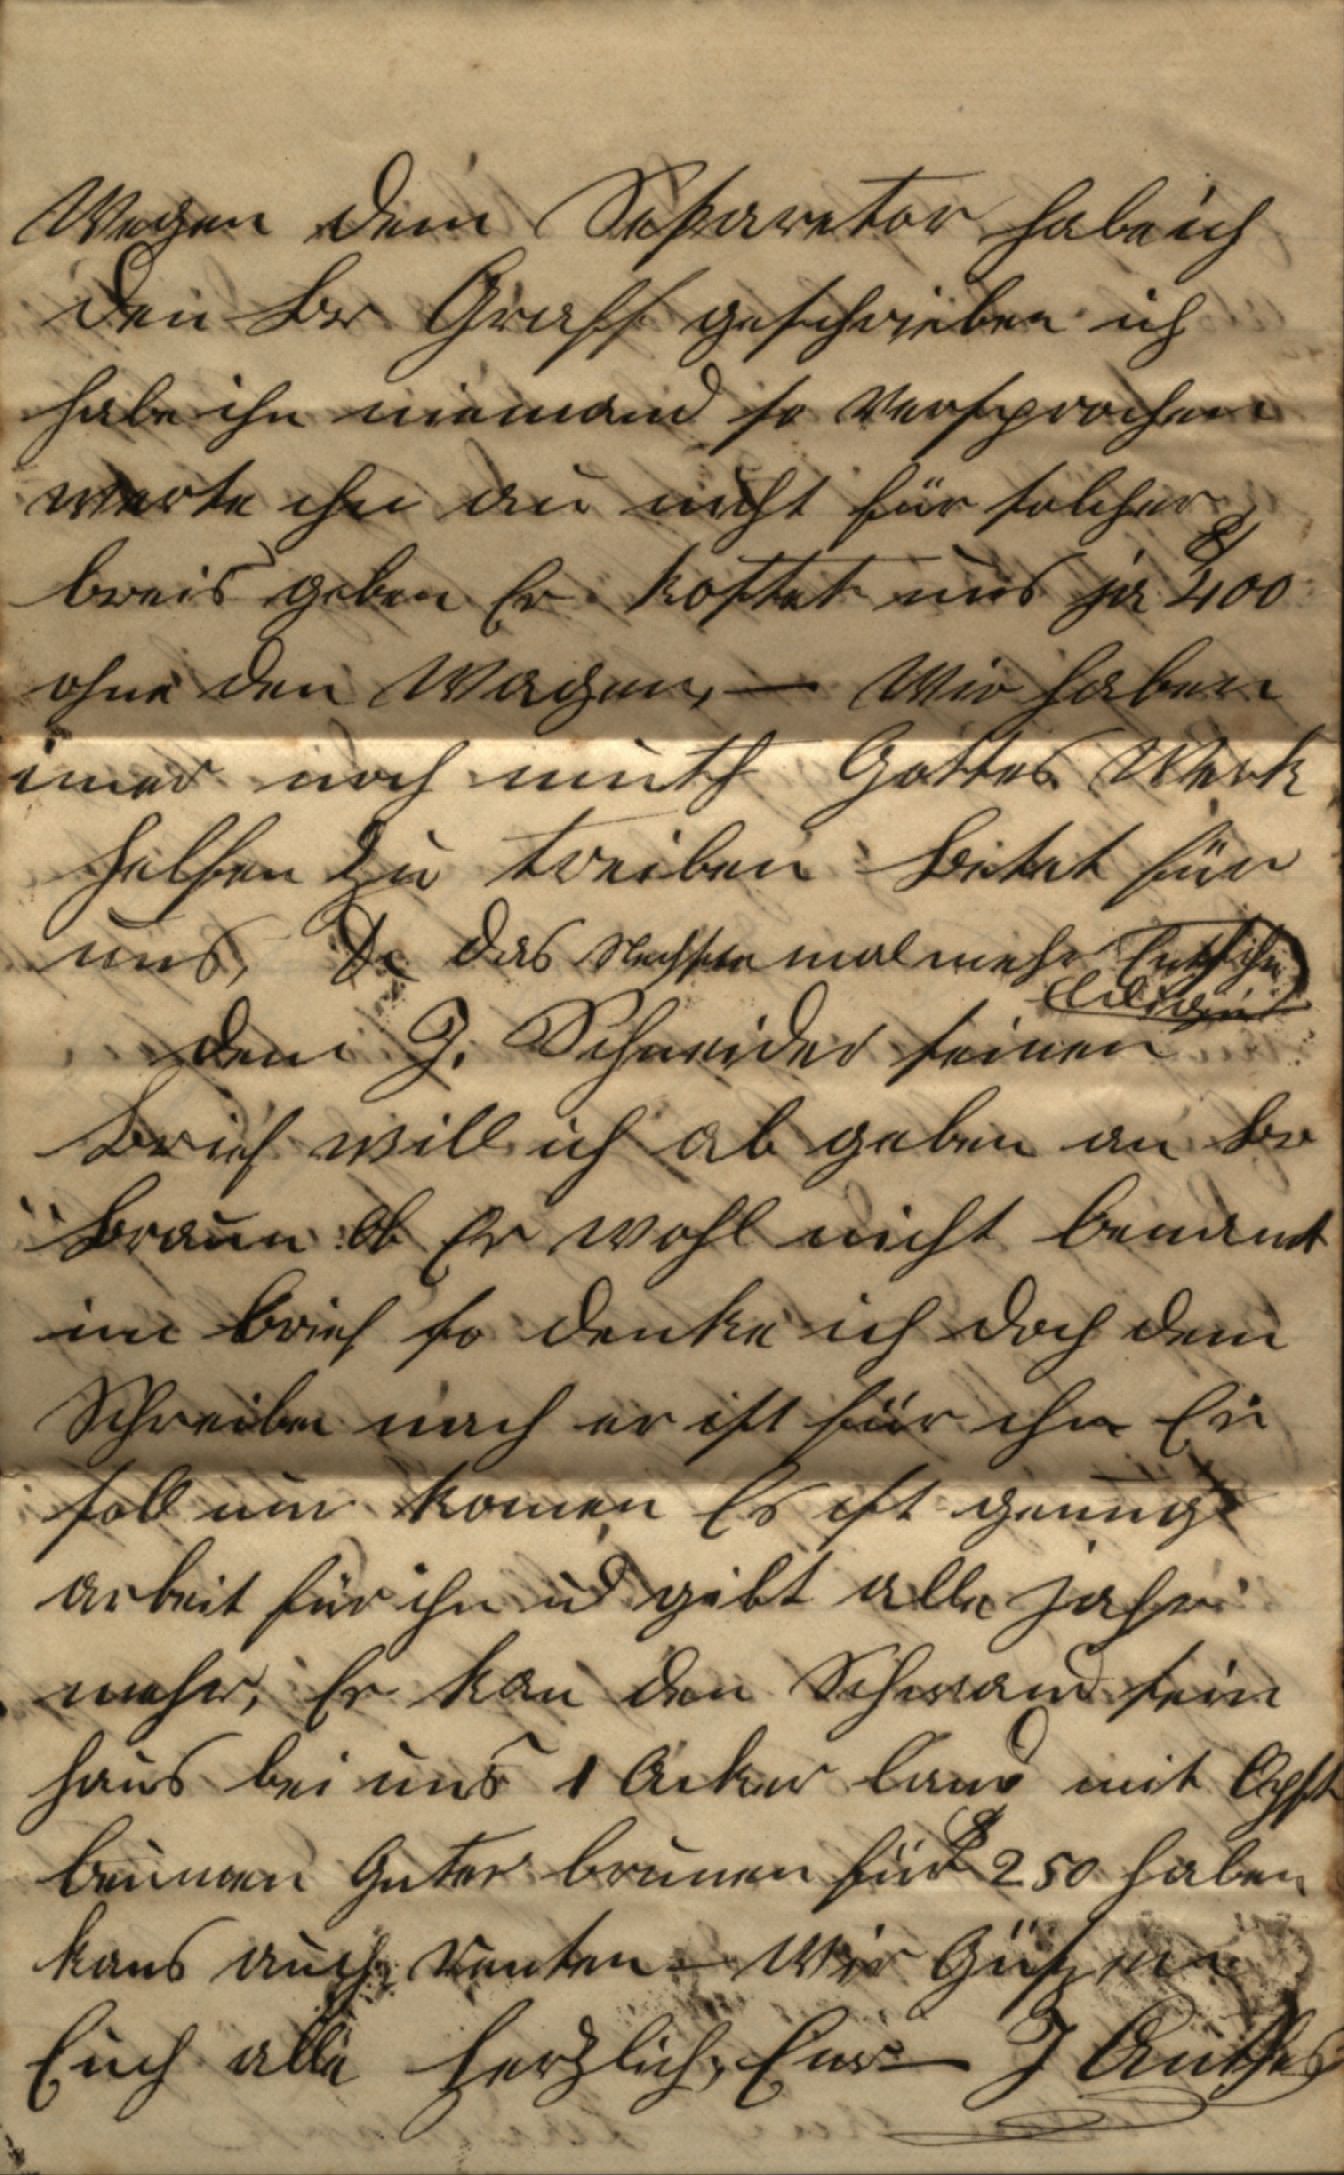 Wegen dem Separetor habe ich
den Br Graff geschrieben ich
habe ihn niemand so versprochen
werte ihn au nicht für solcher
breis geben Er kostet uns ja $400
ohne den Wagen, — Wir haben
imer noch muth Gottes Werk
helfen zu treiben Betet für
uns, das Nechste mal mehr
dem J. Schneider seinen
Brief will ich ab geben an Br
Braun ob Er wohl nicht benamt
im brief so denke ich doch dem
Schreiben nach er ist für ihn Er
soll nur komen Es ist genug
arbeit für ihn ud gibt alle jahr
mehr, Er kan den Schwam sein
haus bei uns 1 Acker land mit Opst
beumen Guter brunen für $250 haben
kans auch renten — Wir Grüsen
Euch alle herzlich, Eur — J Anthes